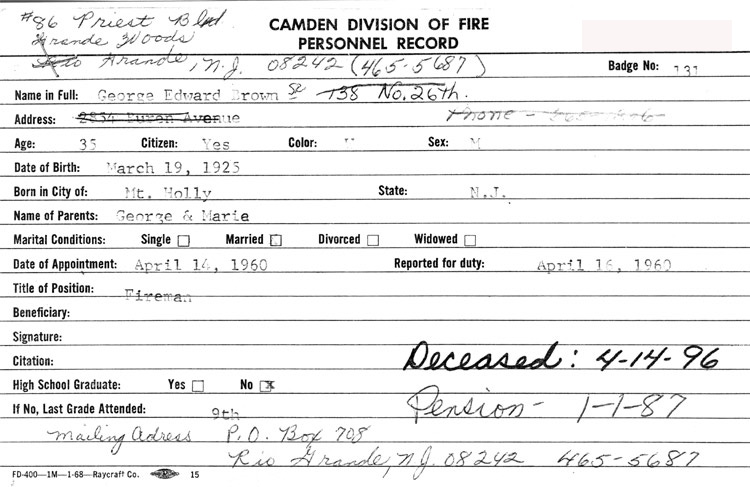 #86 Priest Blvd
Grande Woods
Rio Grande, N.J. 08242 (465-5687)
CAMDEN DIVISION OF FIRE
PERSONNEL RECORD
Badge No: 131
Name in Full: George Edward Brown Sr 738 No. 26th.
Address: 2834 Buren Avenue Phone -
Age: 35 Citizen: Yes Color: Sex: M
Date of Birth: March 19, 1925
Born in City of: Mt. Holly State: N.J.
Name of Parents: George & Marie
Marital Conditions: Single Married Divorced Widowed
Date of Appointment: April 14, 1960 Reported for duty: April 16, 1960
Title of Position: Fireman
Beneficiary:
Signature:
Citation: Deceased: 4-14-96
High School Graduate: Yes No x
If No, Last Grade Attended: 9th Pension - 1-1-87
Mailing Adress P.O. Box 708
Rio Grande, N.J. 08242 465-5687
FD-400—1M—1-68—Raycraft Co. 15